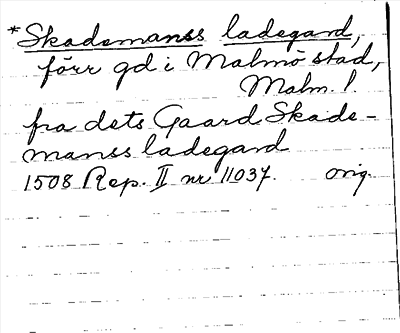 *Skademanss ladegard,
förr gd i Malmö stad,
Malm. l.
fra dets Gaard Skade-
manss ladegard
1508 Rep. II nr 11037. orig.